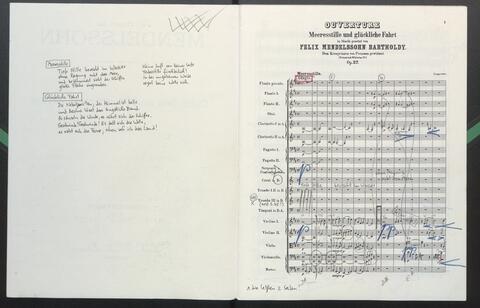 Meeresstille
Tiefe Stille herrscht im Wasser
ohne Regung ruht das Meer,
und bekümmert sieht der Schiffer
glatte Fläche ringsumher.
Keine Luft von keiner Seite
Todesstille fürchterlich!
In der ungeheuren Weite
reget keine Welle sich.
Glückliche Fahrt
Die Nebel zerreißen, der Himmel ist helle
und Aeolus löset das ängstliche Band.
Es säuseln die Winde, es rührt sich der Schiffer,
Geschwinde! Geschwinde! Es teilt sich die Welle,
es naht sich die Ferne, schon seh ich das Land!
OUVERTURE
Meeresstille und glückliche Fahrt
in Musik gesetzt von
FELIX MENDELSSOHN BARTHOLDY.
Dem Kronprinzen von Preussen gewidmet
Op. 27.
Meeresstille.
Adagio
Flauto piccolo.
Flauto I.
Flauto II.
Oboi.
Clarinetto I in A.
Clarinetto II in A.
Fagotto I.
Fagotto II.
Contrafagotto.
Corni in D.
Tromba I.II in D.
Tromba III in D.
Timpani in D.A.
Violino I.
Violino II.
Viola.
Violoncello.
Basso.